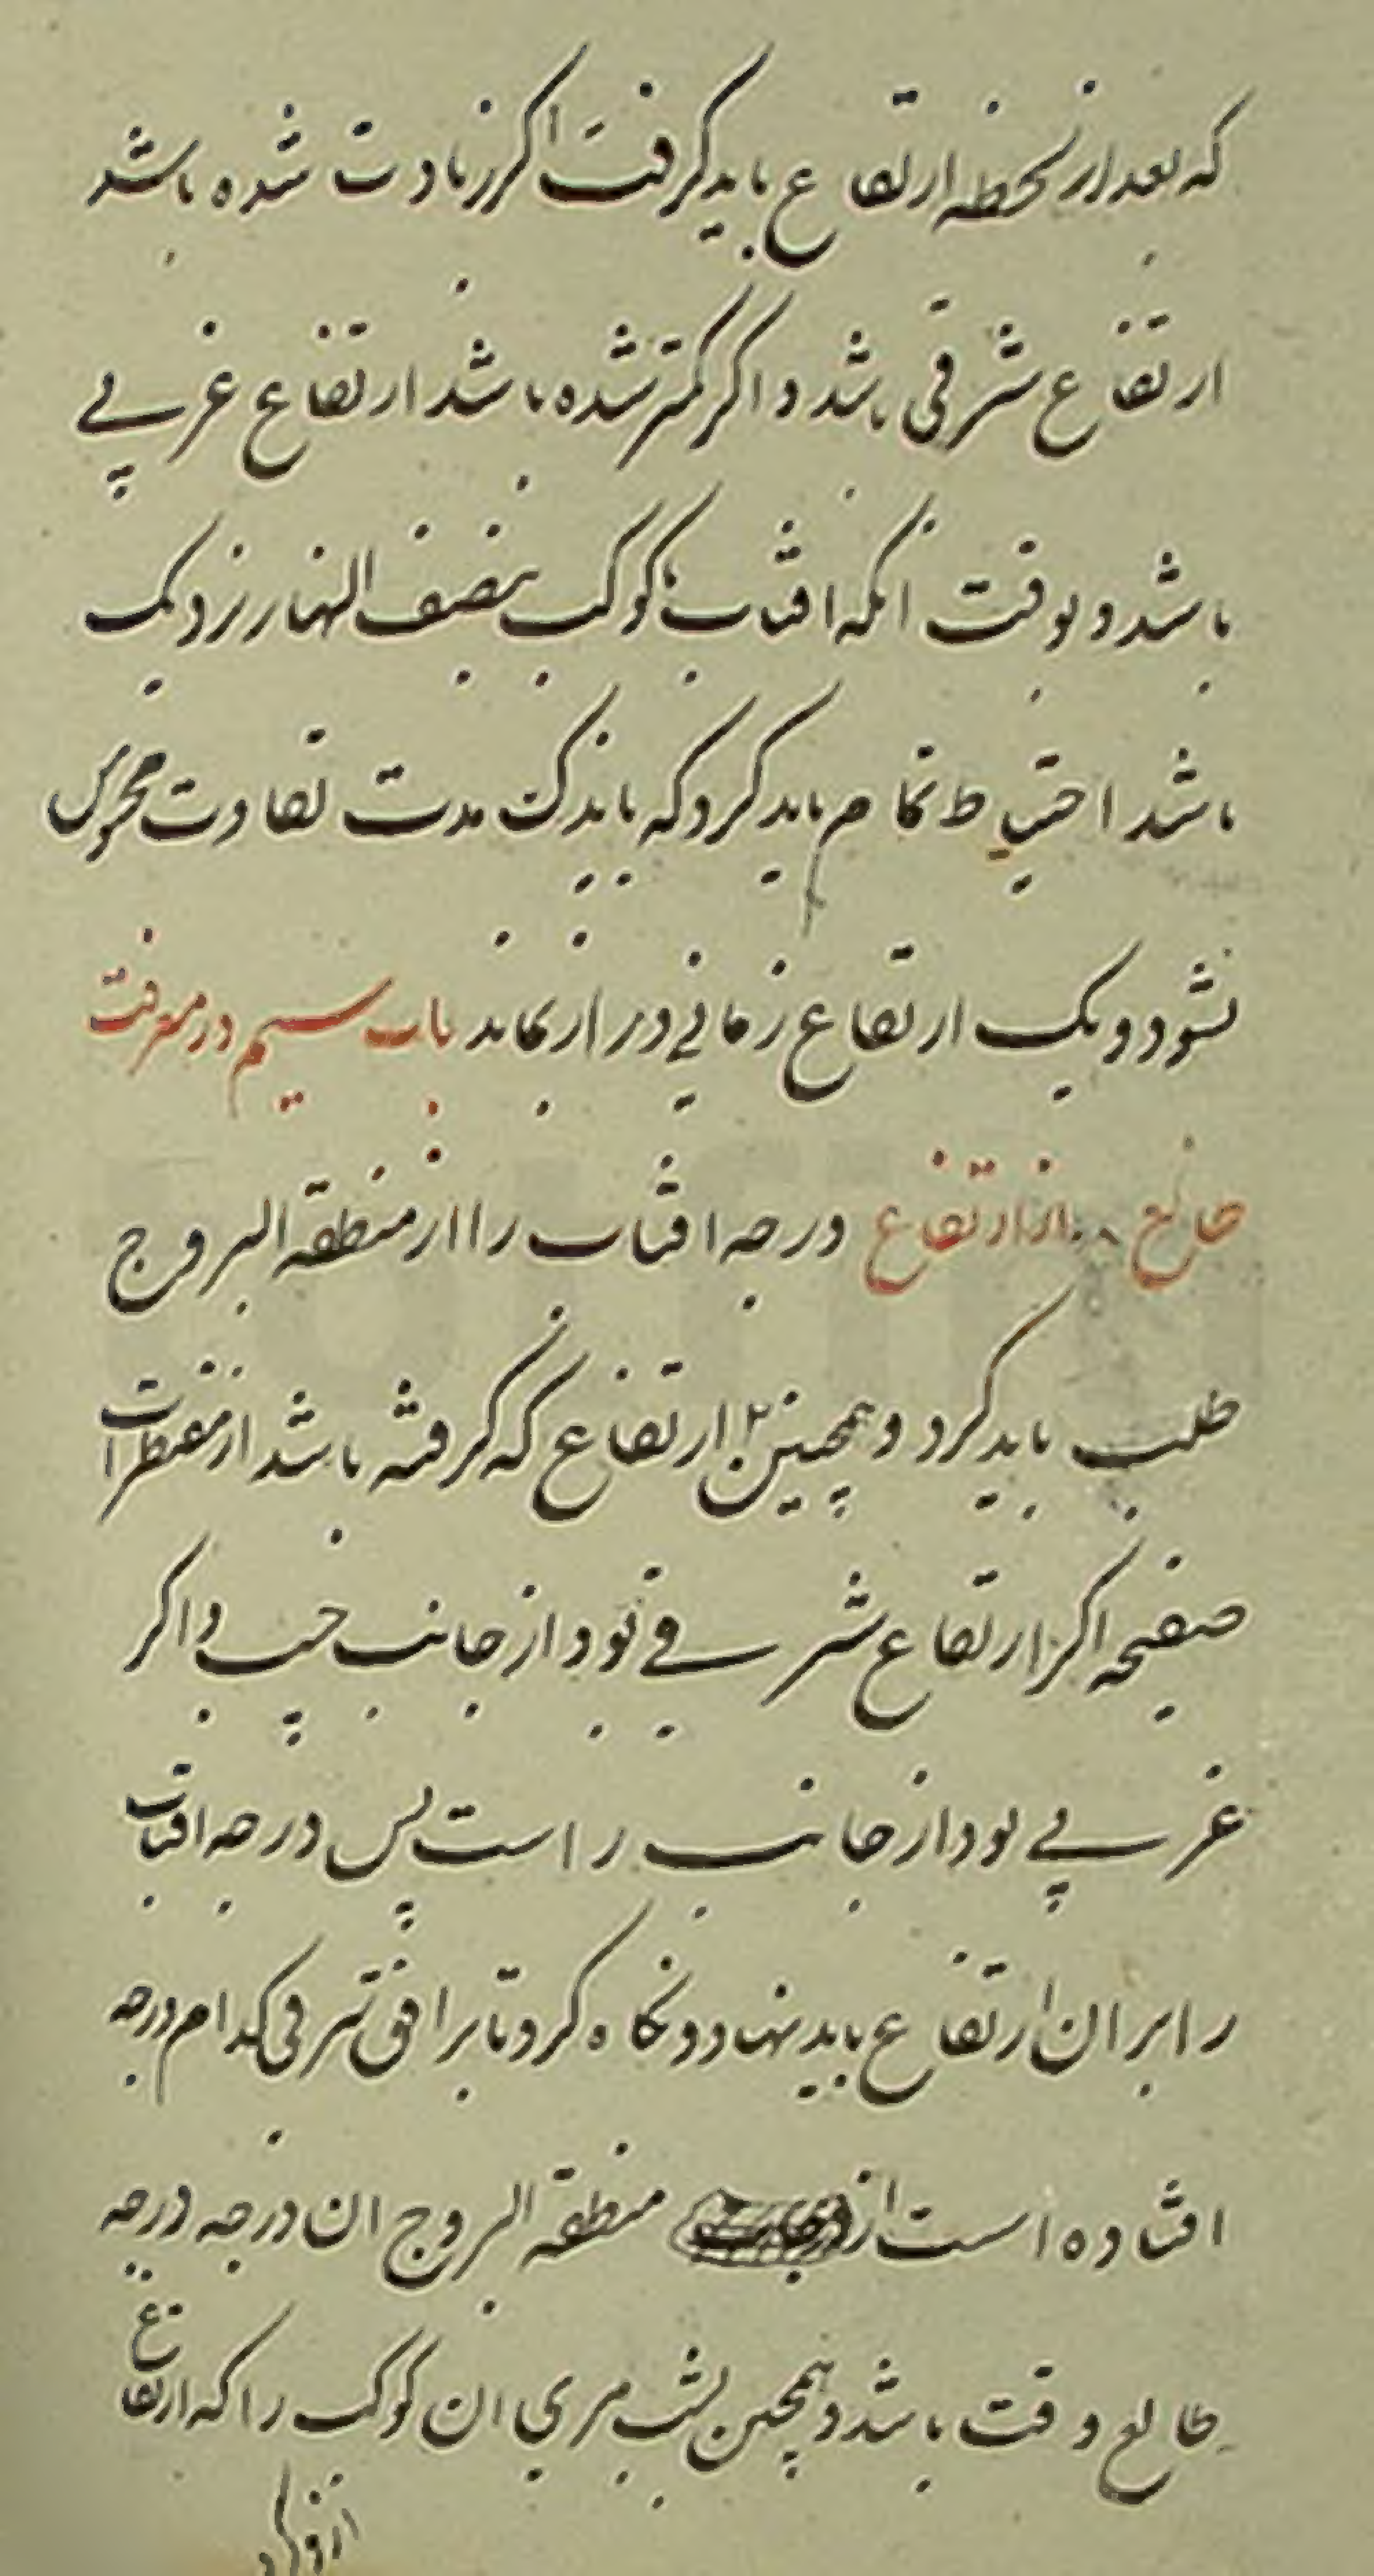 که بعد از لحظه ارتفاع باید کرفت اکر زیادت شده باشد
ارتفاع شرقی باشد و اکر کمتر شده باشد ارتفاع غربی
باشد و بوقت انکه افتاب کوکب بنصف النهار نزدیک
باشد احتیاط تمام باید کرد که باندک مدت تفاوت محسوس
نشود و یک ارتفاع زمانی دراز بماند باب سیم در معرفت
طالع از ارتفاع درجه افتاب را از منطقة البروج
طلب باید کرد و همچنین ارتفاع که کرفته باشد از مقنطرات
صفیحه اکر ارتفاع شرقی بود از جانب چپ و اکر
غربی بود از جانب راست پس درجه افتاب
را بر ان ارتفاع باید نهاد و نکاه کرد تا بر افق شرقی کدام درجه
افتاده است از منطقة البروج ان درجه درجه
طالع وقت باشد و همچنین بشب مری ان کوکب را که ارتفاع
ازو کرد